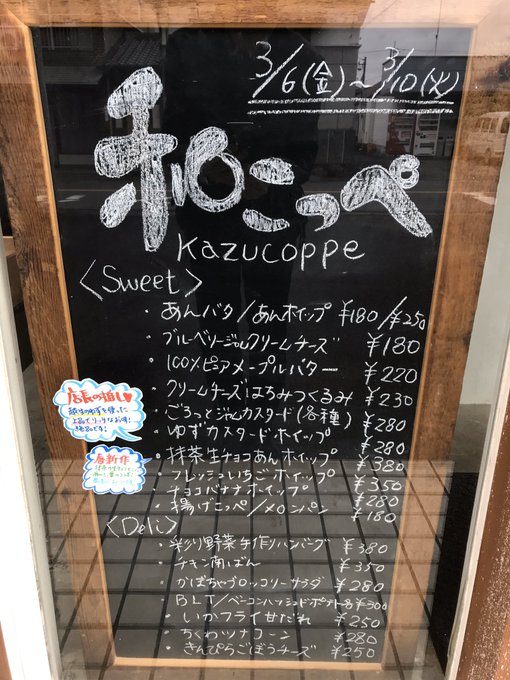 3/6(金)〜3/10(火)
和こっぺ
Kazucoppe
<Sweet>
・あんバタ/あんホイップ ¥180/¥250
・ブルーベリージャムクリームチーズ ¥180
・100%ピュアメープルバター ¥220
・クリームチーズはちみつくるみ ¥230
・ごろっとジャムカスタード(各種) ¥280
・ゆずカスタードホイップ ¥280
・抹茶生チョコあんホイップ ¥380
・フレッシュいちごホイップ ¥350
・チョコバナナホイップ ¥280
・揚げこっぺ/メロンパン ¥180
店長の推し♥
春新作
<Deli>
・彩り野菜手作りハンバーグ ¥380
・チキン南ばん ¥350
・かぼちゃブロッコリーサラダ ¥280
・BLT/ベーコンハッシュドポテト各¥300
・いかフライ甘だれ ¥250
・ちくわツナコーン ¥280
・きんぴらごぼうチーズ ¥250